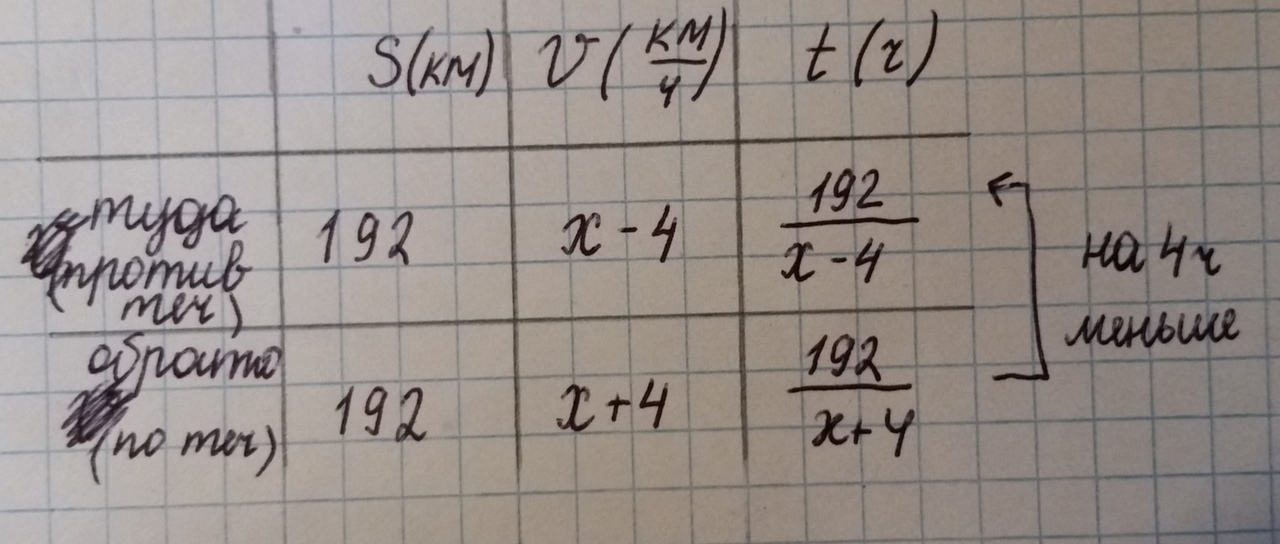 S(км) v(км/ч) t(ч)
туда (против теч) 192 x-4 192/x-4
на 4ч меньше
обратно (по теч) 192 x+4 192/x+4